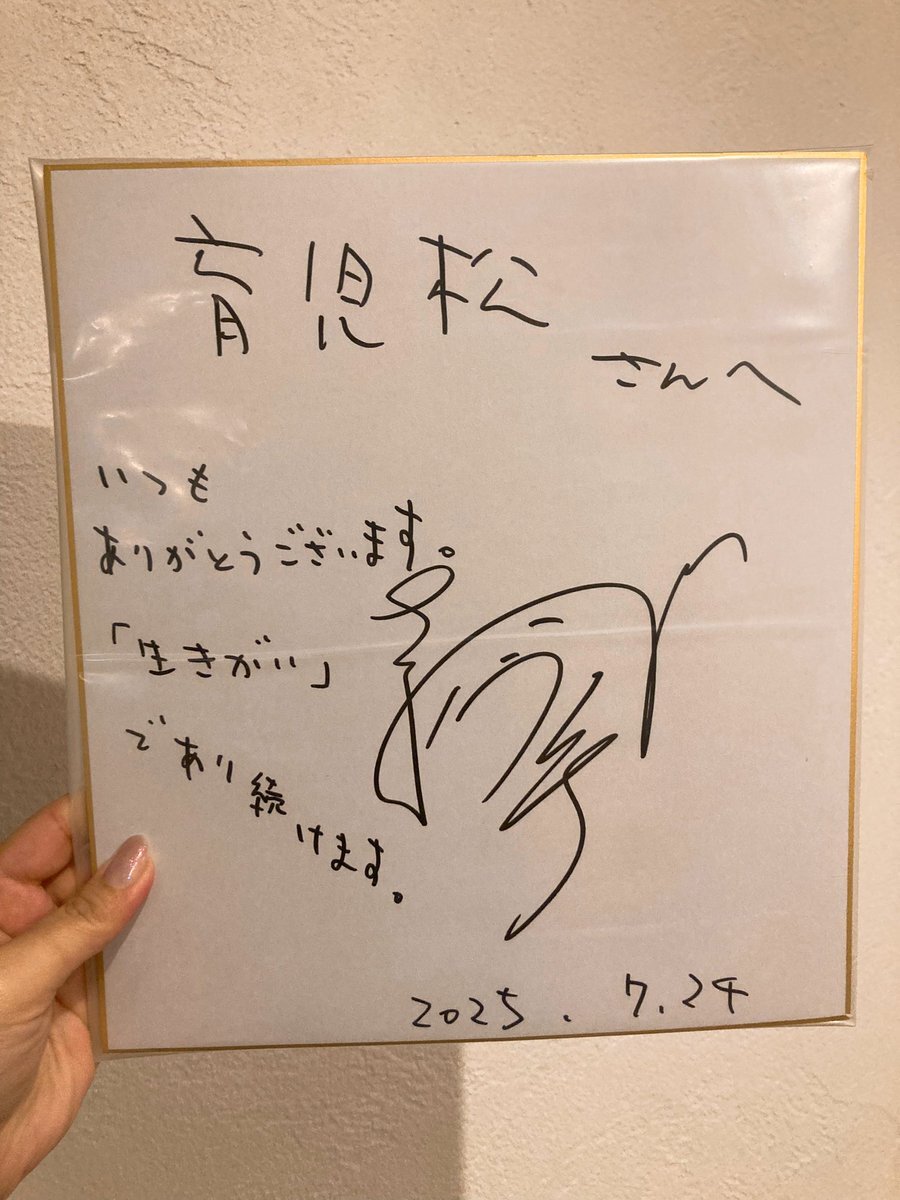 育児松
さんへ
いつも
ありがとうございます。
「生きがい」
であり続けます。
2025.7.24